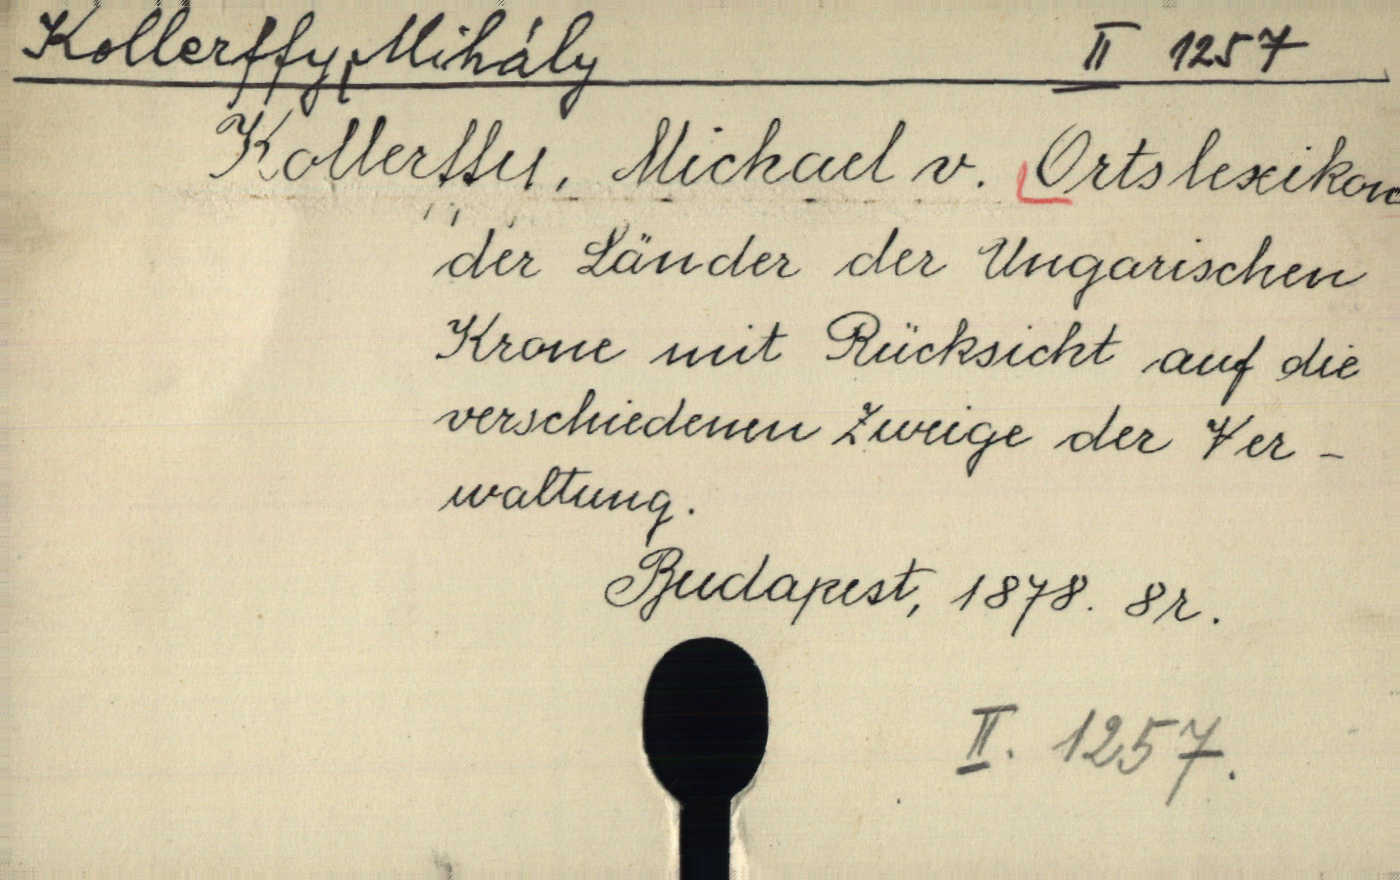 Kollerffy, Mihály II 1257
Kollerffy, Michael v. Ortslexikon
der Länder der Ungarischen
Krone mit Rücksicht auf die
verschiedenen Zweige der Ver-
waltung.
Budapest, 1878. 8r.
II. 1257.